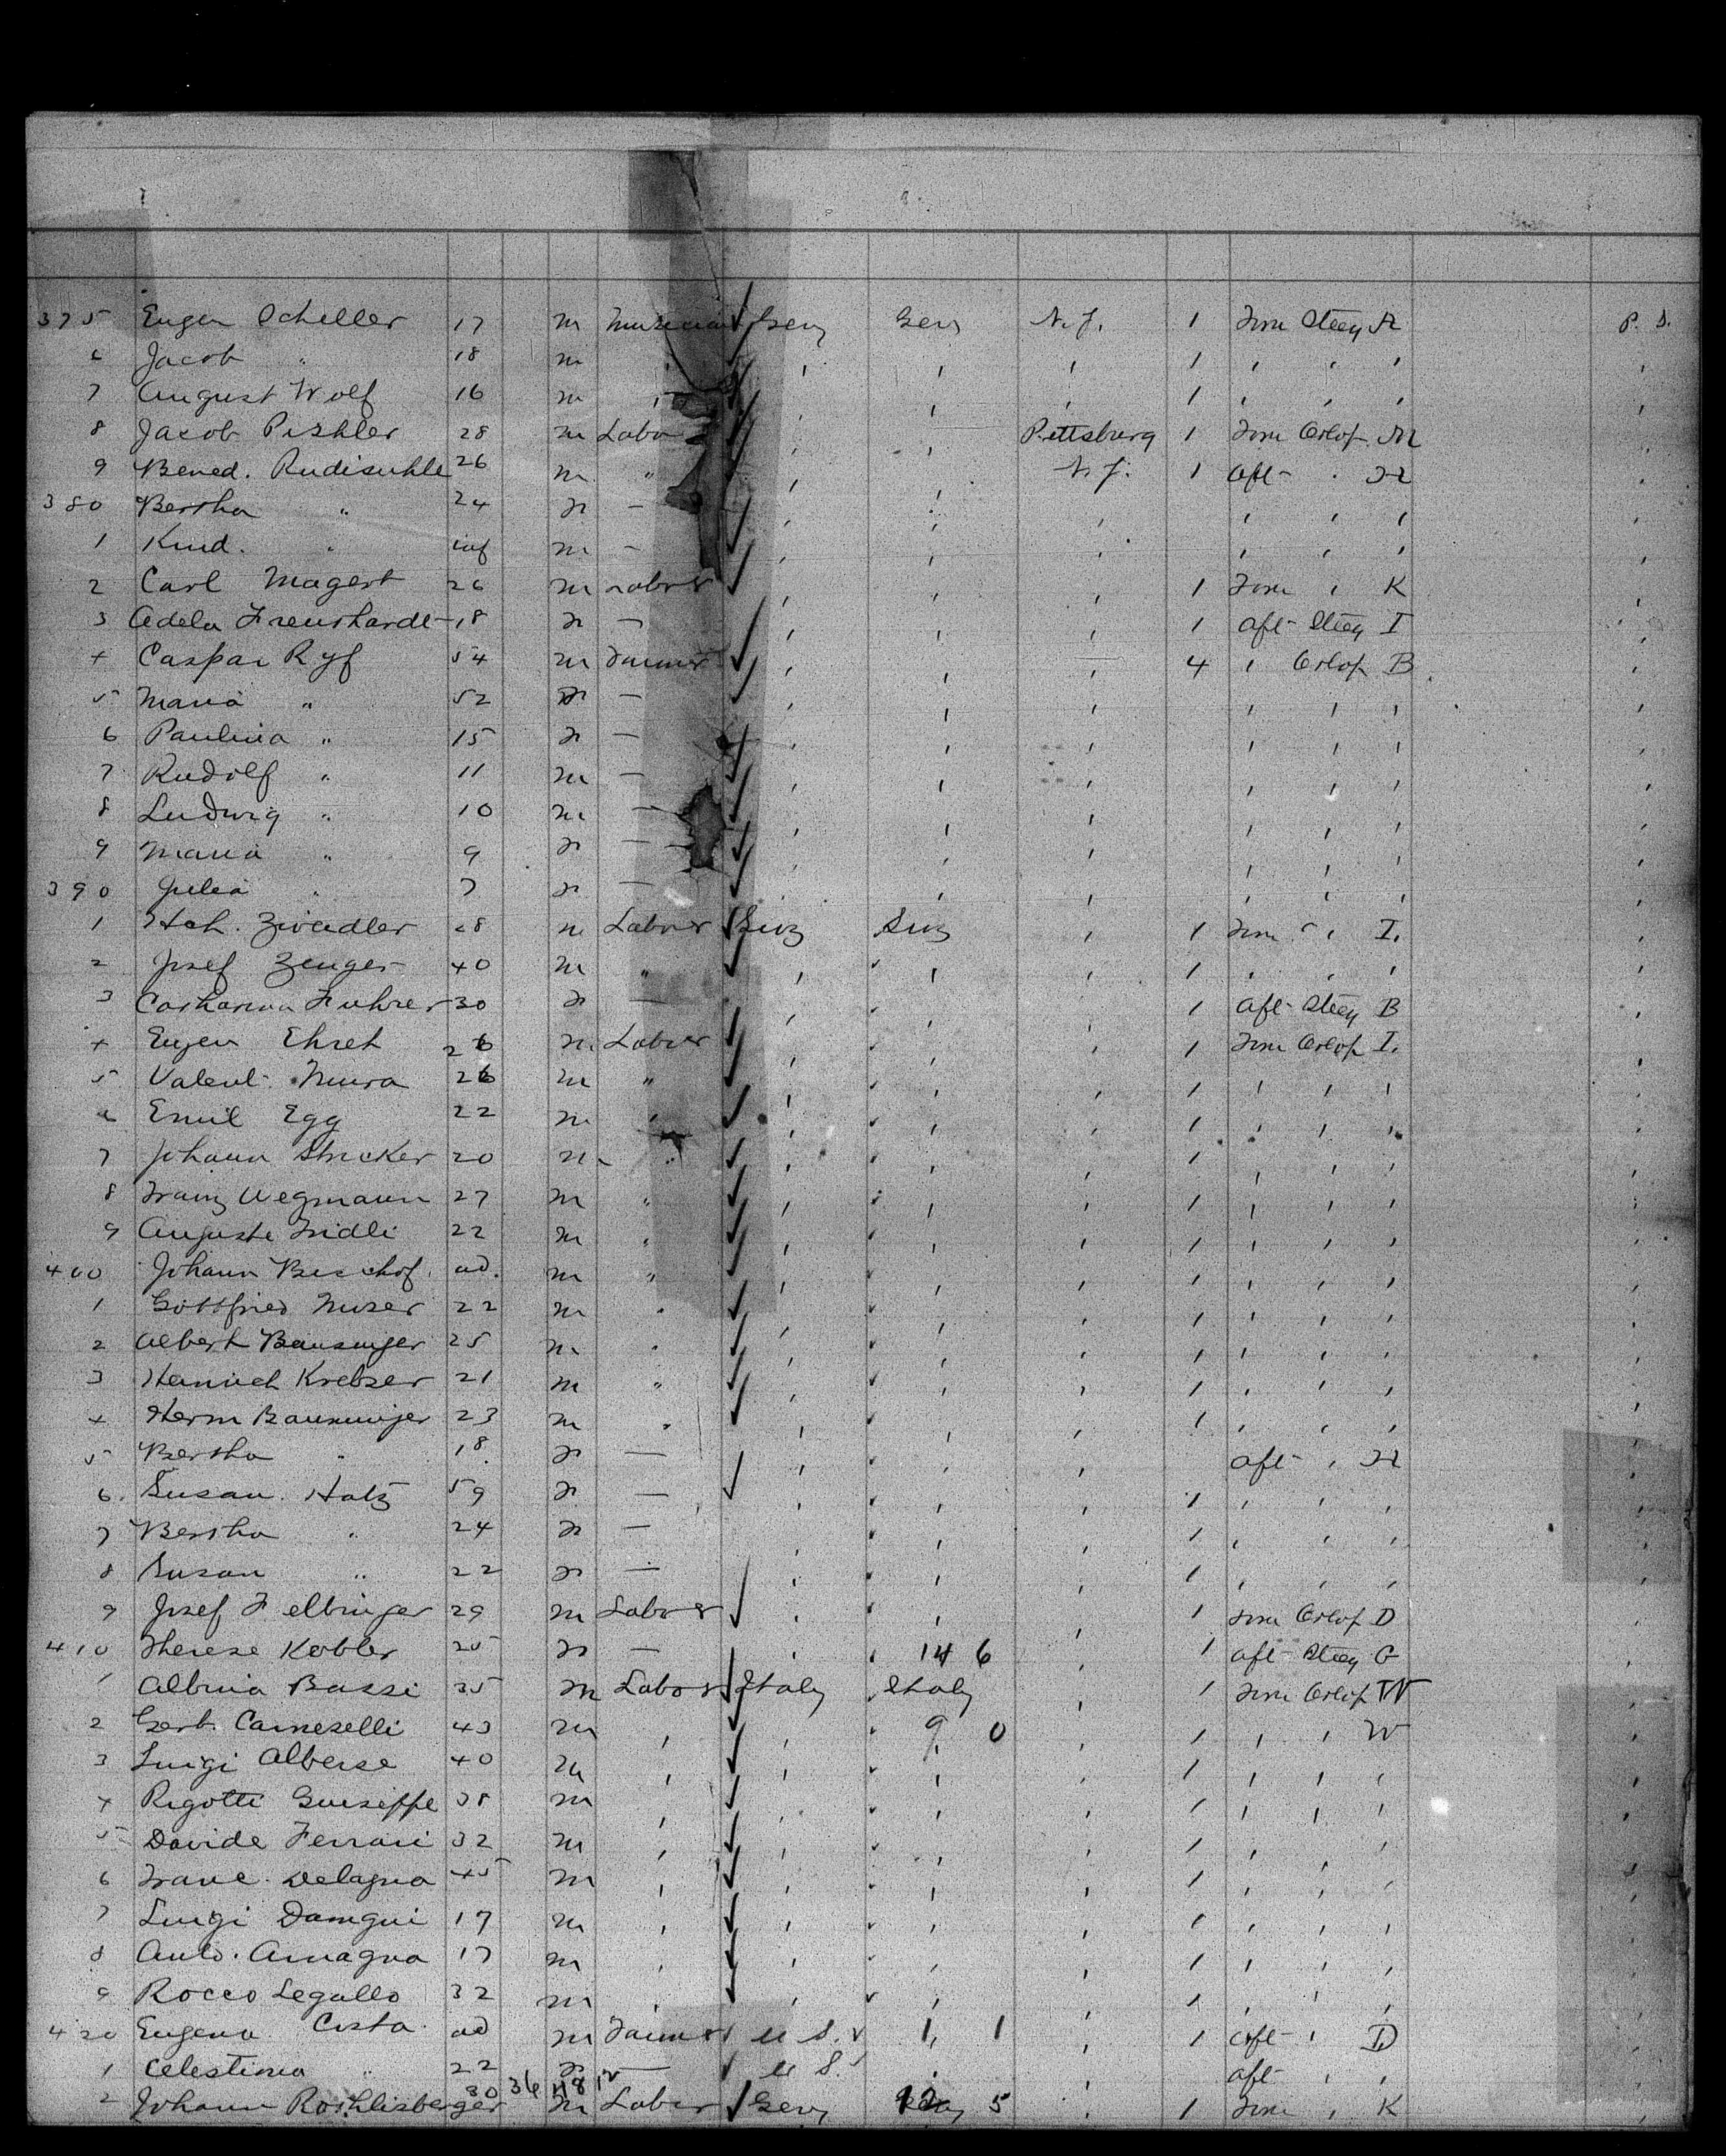 375 Eugen Scheller 17 m Musician ✓ Gery Gery N.Y. 1 Forw Steeg A P. D.
6 Jacob " 18 m " ✓ " " " 1 " " " "
7 August Wolf 16 m " ✓ " " " 1 " " " "
8 Jacob Pishler 28 m Labo ✓ " " Pittsburg 1 Forw Orlop M "
9 Bened. Rudisuhle 26 m " ✓ " " N.Y. 1 aft " H "
380 Bertha " 24 f — ✓ " " " " " " "
1 Kind. " inf m — ✓ " " " " " " "
2 Carl Magert 26 m Labor ✓ " " " 1 Forw " K "
3 Adela 18 f — ✓ " " " 1 aft Steeg I "
4 Caspar Ryf 54 m Farmer ✓ " " " 4 " Orlop B "
5 Maria " 52 f — ✓ " " " " " " "
6 Paulina " 15 f — ✓ " " " " " " "
7 Rudolf " 11 m — ✓ " " " " " " "
8 Ludwig " 10 m — ✓ " " " " " " "
9 Maria " 9 f — ✓ " " " " " " "
390 Julia " 7 f — ✓ " " " " " " "
1 Hch. 28 m Labor ✓ Swz Swz " 1 Forw " I. "
2 Josef Zenger 40 m " ✓ " " " 1 " " " "
3 Catharina Fuhrer 30 f — ✓ " " " 1 aft Steeg B "
4 Eugen Ehret 26 m Labor ✓ " " " 1 Forw Orlop I. "
5 Valent. Mura 26 m " ✓ " " " 1 " " " "
6 Emil Egg 22 m " ✓ " " " 1 " " " "
7 Johann Stricker 20 m " ✓ " " " 1 " " " "
8 Franz Wegmann 27 m " ✓ " " " 1 " " " "
9 Auguste Fridli 22 m " ✓ " " " 1 " " " "
400 Johann Bischof. ad. m " ✓ " " " 1 " " " "
1 Gottfried 22 m " ✓ " " " 1 " " " "
2 Albert 25 m " ✓ " " " 1 " " " "
3 Heinrich Krebser 21 m " ✓ " " " 1 " " " "
4 Herm 23 m " ✓ " " " 1 " " " "
5 Bertha " 18 f — " " " aft " H "
6. Susan. Hotz 59 f — ✓ " " " 1 " " " "
7 Bertha " 24 f — " " " 1 " " " "
8 Susan " 22 f — " " " 1 " " " "
9 Josef Felbinger 29 m Labor ✓ " " " 1 Forw Orlop D "
410 Therese Kobler 25 f — " 14 6 " 1 aft Steeg G "
1 Albina Bassi 35 m Labor ✓ Italy Italy " 1 Forw Orlop W "
2 Gerb. Carneselli 43 m " ✓ " 9 0 " 1 " " W "
3 Luigi Alberse 40 m " ✓ " " " 1 " " " "
4 Rigotti Guiseppe 38 m " ✓ " " " 1 " " " "
5 Davide Ferrari 32 m " ✓ " " " 1 " " " "
6 Franc. Delagna 45 m " ✓ " " " 1 " " " "
7 Luigi 17 m " ✓ " " " 1 " " " "
8 Anto. Amagna 17 m " ✓ " " " 1 " " " "
9 Rocco Legallo 32 m " ✓ " " " 1 " " " "
420 Eugena Costa ad m Farmer ✓ U S. ✓ 1 1 " 1 aft " D "
1 Celestina " 22 f — ✓ U S. ✓ " " aft " " "
30 34 48 12
2 Johann Rothlisberger m Labor ✓ Gery 12 5 " 1 Forw " K "